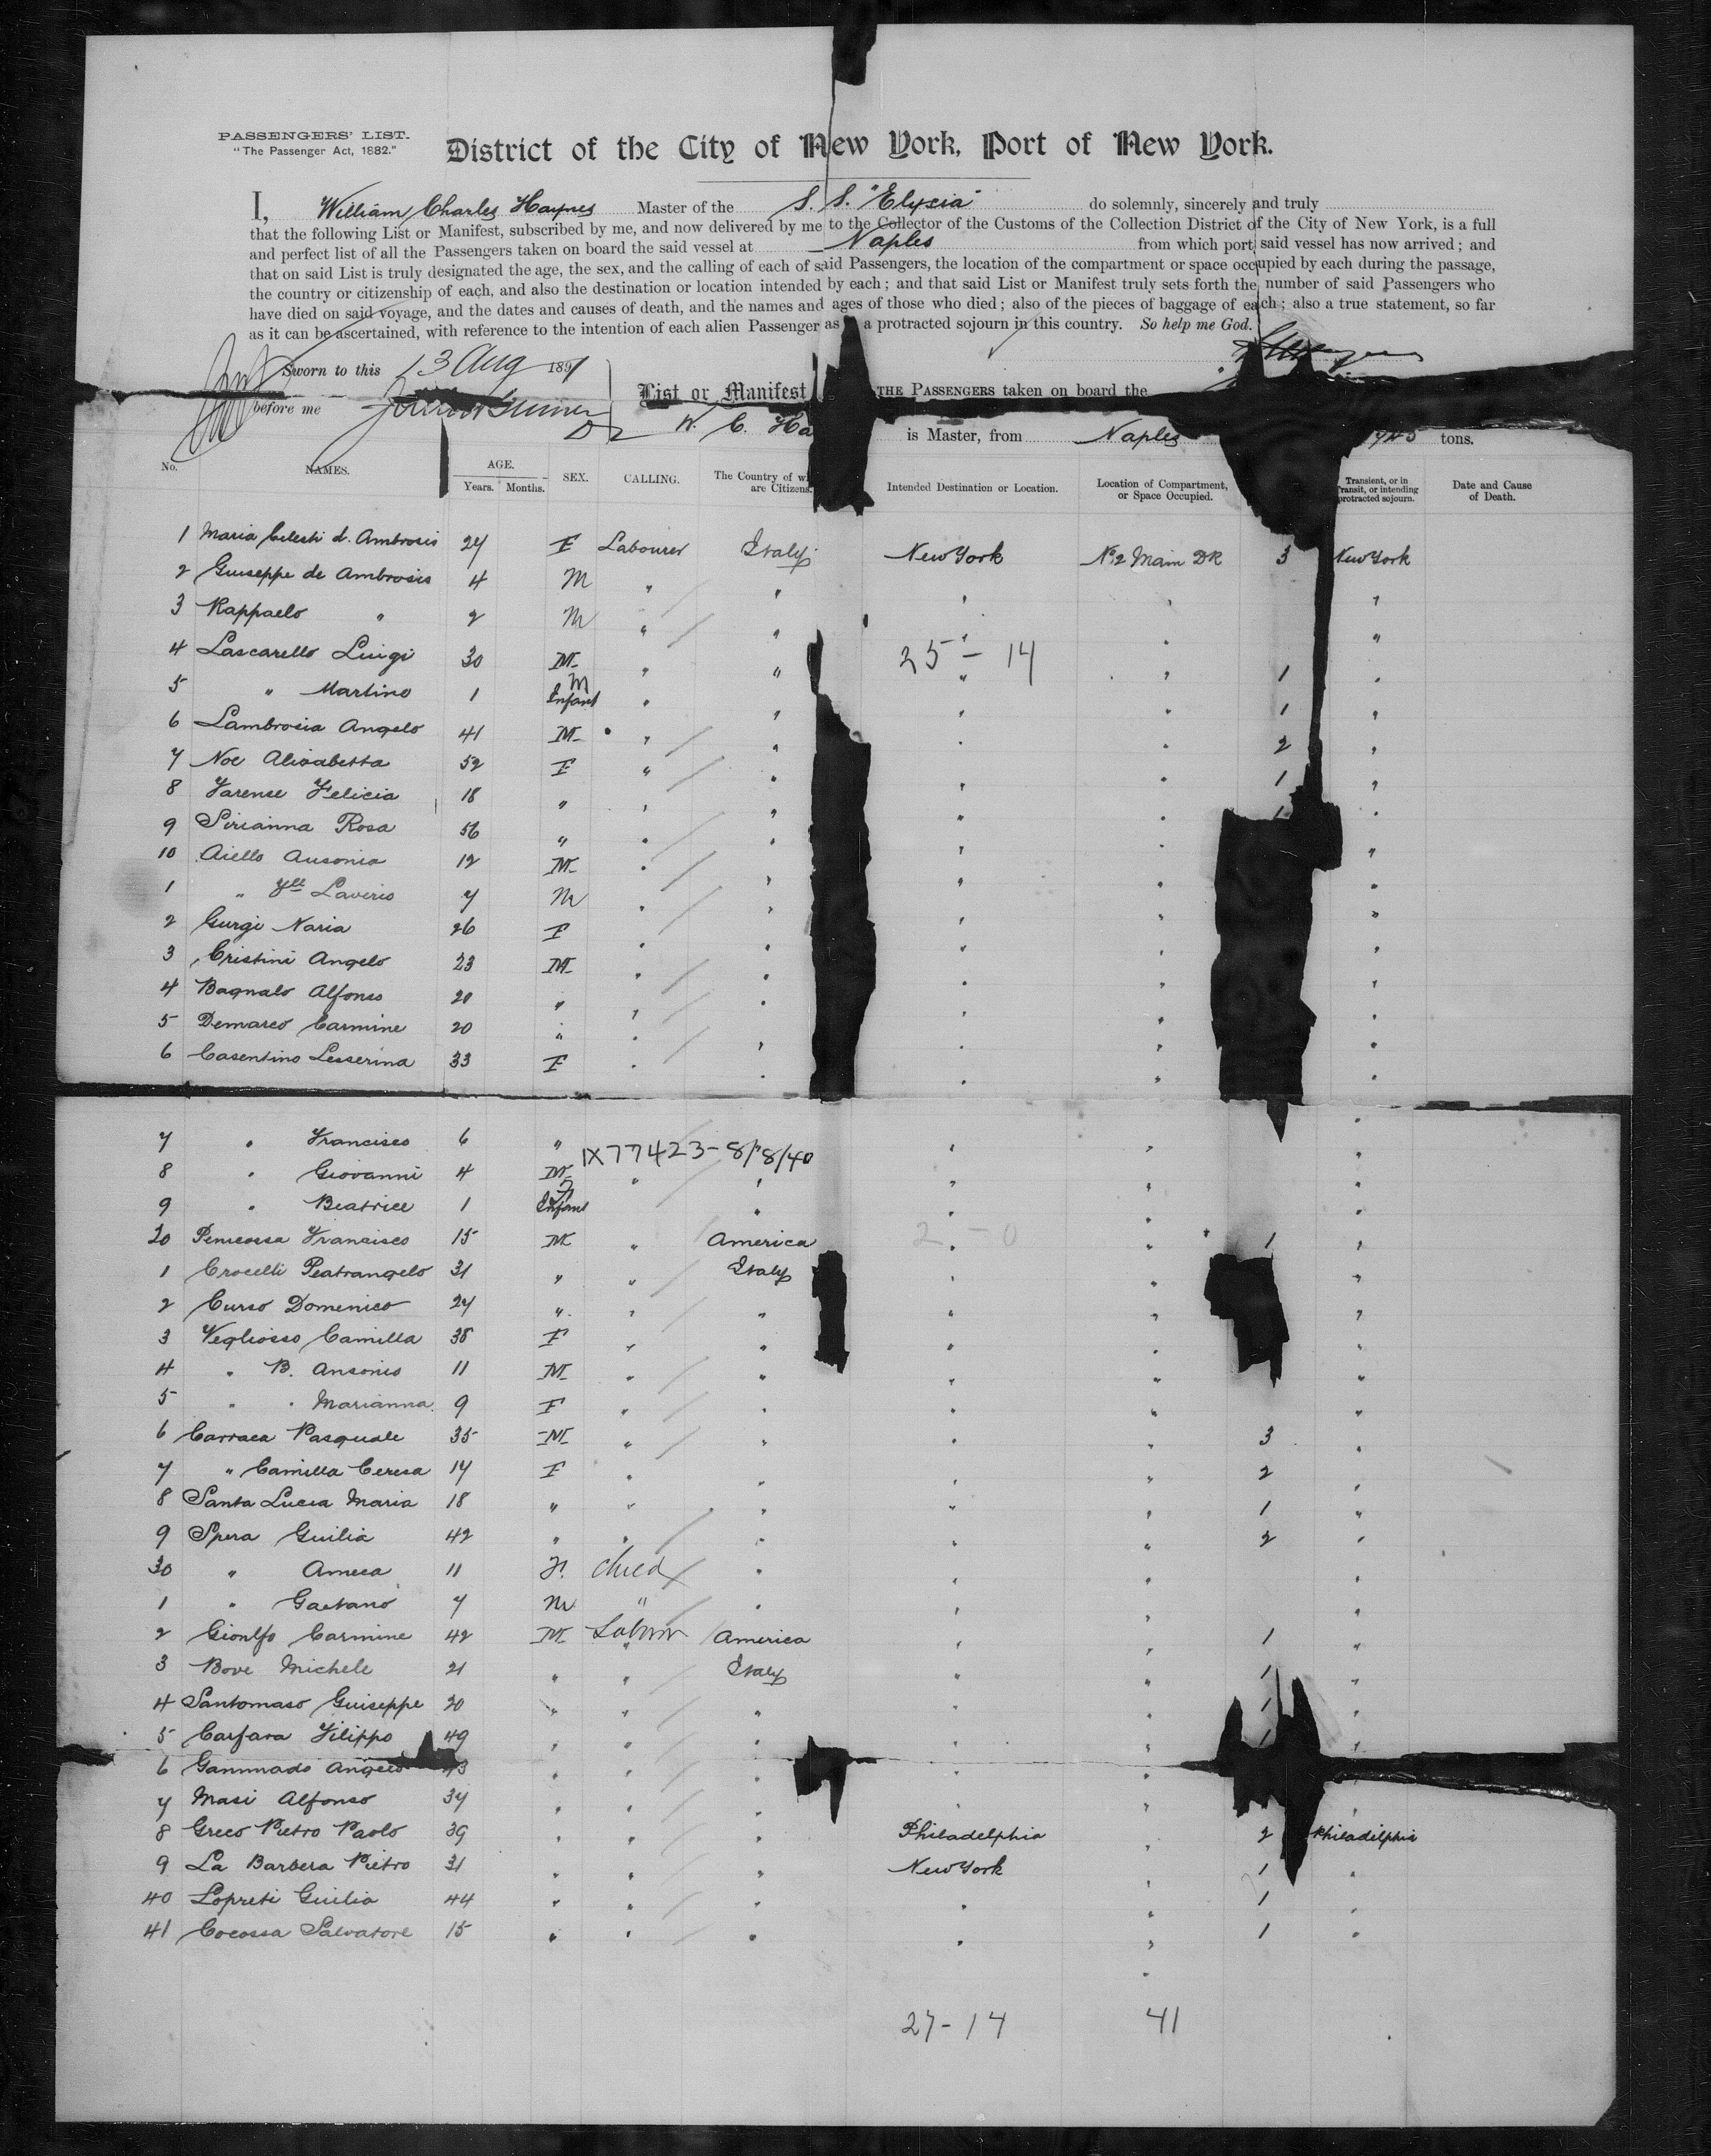 PASSENGERS' LIST.
"The Passenger Act, 1882."
District of the City of New York, Port of New York.
I, William Charles Haynes Master of the S. S. "Elysia" do solemnly, sincerely and truly
that the following List or Manifest, subscribed by me, and now delivered by me to the Collector of the Customs of the Collection District of the City of New York, is a full
and perfect list of all the Passengers taken on board the said vessel at Naples from which port said vessel has now arrived; and
that on said List is truly designated the age, the sex, and the calling of each of said Passengers, the location of the compartment or space occupied by each during the passage,
the country or citizenship of each, and also the destination or location intended by each; and that said List or Manifest truly sets forth the number of said Passengers who
have died on said voyage, and the dates and causes of death, and the names and ages of those who died; also of the pieces of baggage of each; also a true statement, so far
as it can be ascertained, with reference to the intention of each alien Passenger as a protracted sojourn in this country. So help me God.
Sworn to this 13 Aug 1891
before me
List or Manifest THE PASSENGERS taken on board the
W. C. Ha is Master, from Naples tons.
No. NAMES. AGE. Years. Months. SEX. CALLING. The Country of w are Citizens. Intended Destination or Location. Location of Compartment, or Space Occupied. Transient, or in Transit, or intending protracted sojourn. Date and Cause of Death.
1 Maria Celesti d. Ambrosis 27 F Labourer Italy New York No 2 Main DK 3 New York
2 Guiseppe de Ambrosis 4 M " " " " "
3 Rappaelo " 2 M " " " " "
25 - 14
4 Lascarello Luigi 30 M " " " " 1 "
5 " Martino 1 M Infant " " " " 1 "
6 Lambrosia Angelo 41 M " " " " 2 "
7 Noe Alisabetta 52 F " " " " 1 "
8 Farense Felicia 18 " " " " " 1 "
9 Sirianna Rosa 56 " " " " " "
10 Aiello Ausonio 12 M " " " " "
1 " Laverio 7 M " " " " "
2 Gurgi Naria 26 F " " " " "
3 Cristini Angelo 23 M " " " " "
4 Bagnalo Alfonso 20 " " " " " "
5 Demarco Carmine 20 " " " " " "
6 Casentino Lesserina 33 F " " " " "
7 " Francisco 6 " " " "
1X77423-8/8/40
8 " Giovanni 4 M " " " " "
9 " Beatrice 1 F Infant " " " "
20 Francisco 15 M " America " " 1 "
1 Crocelli Peatrangelo 31 " " Italy " " "
2 Curso Domenico 27 " " " " " "
3 Vegliosso Camilla 38 F " " " " "
4 " B. Ansonio 11 M " " " " "
5 " " Marianna 9 F " " " " "
6 Carraca Pasquale 35 M " " " " 3 "
7 " Camilla Ceresa 17 F " " " " 2 "
8 Santa Lucia Maria 18 " " " " " 1 "
9 Spera Guilia 42 " " " " " 2 "
30 " Ameca 11 F. Child " " " "
1 " Gaetano 7 M " " " " "
2 Gionlfo Carmine 42 M Labour America " " 1 "
3 Bove Michele 21 " " Italy " " 1 "
4 Santomaso Guiseppe 20 " " " " " 1 "
5 Carfara Filippo 49 " " " " " 1 "
6 Gammado Angelo " " " " " "
7 Masi Alfonso 37 " " " " " "
8 Greco Pietro Paolo 39 " " " Philadelphia " 2 Philadelphia
9 La Barbera Pietro 31 " " " New York " 1 "
40 Lopreti Guilio 44 " " " " " 1 "
41 Cocossa Salvatore 15 " " " " " 1 "
27 - 14 41